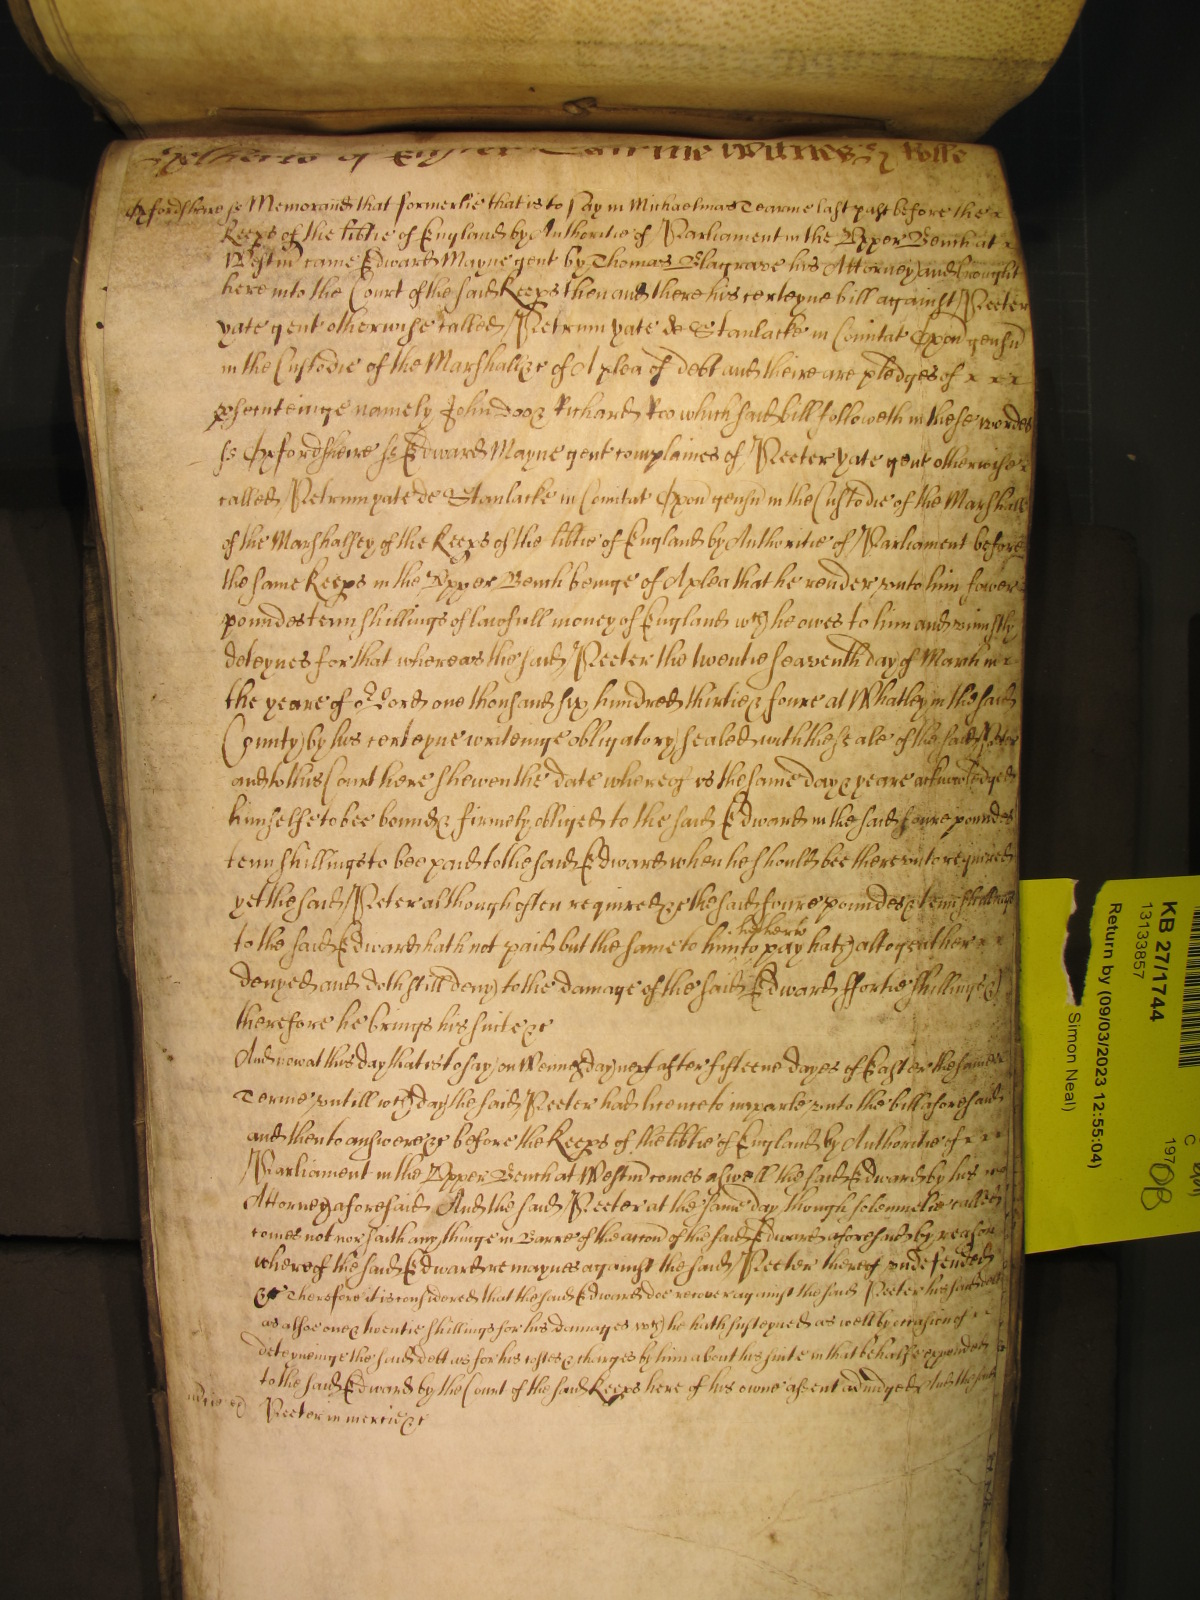 of Easter Tearme Witnes Rolle
Oxfordshire ss Memorand that formerlie that is to say in Michaelmas Tearme last past before the
Keeps of the libtie of England by Authoritie of Parliament in the Upper Bench at
Westm came Edward Mayne gent by Thomas Blagrave his Attorney and brought
here into the Court of the said Keeps then and there his certeyne bill against Peeter
yate gent otherwise called Petrum yate de Stanlacke in Comitat Oxon gensu
in the Custodie of the Marshall &c of A plea of debt and theire are pledges of
psecuteinge namely John doo & Richard Roo which said bill followeth in these wordes
ss Oxfordshire ss Edward Mayne gent complaines of Peeter Yate gent otherwise
called Petrum yate de Stanlacke in Comitat Oxon gensu in the Custodie of the Marshall
of the Marshalsey of the Keeps of the libtie of England by Authoritie of Parliament before
the same Keeps in the Upper Bench beinge of A plea that he render unto him fower
poundes tenn shillings of lawfull money of England wch he owes to him and uniustly
deteynes for that whereas the said Peeter the twentie seaventh day of March in
the yeare of or Lord one thousand six hundred thirtie & foure at Whatley in the said
County by his certeyne writeinge obligatory sealed with the seale of the said Peeter
and to this Court here shewen the date whereof is the same day & yeare acknowledged
himselfe to bee bound & firmely obliged to the said Edward in the said foure poundes
tenn shillings to bee paid to the said Edward when he should bee thereunto required
yet the said Peeter although often required &c the said foure poundes & tenn shillings
to the said Edward hath not paid but the same to him hitherto to pay hath altogeather
denyed and doth still deny to the damage of the said Edward ffortie shillings &
therefore he brings his suite &c
And now at this day that is to say on Wennesday next after fifteene dayes of Easter the same
Terme untill wch day the said Peeter had licence to imparle unto the bill aforesaid
and then to answere &c before the Keeps of the libtie of England by Authoritie of
Parliament in the Upper Bench at Westm comes aswell the said Edward by his
Attorney aforesaid And the said Peeter at the same day though solemnelie called
comes not nor saith any thinge in Barre of the accon of the said Edward aforesaid by reason
whereof the said Edward remaynes against the said Peeter thereof undefended
&c Therefore it is considered that the said Edward doe recover against the said Peeter his said debt
as alsoe one & twentie shillings for his damages wch he hath susteyned as well by occasion of
deteyneinge the said debt as for his costes & charges by him about his suite in that behalfe expended
to the said Edward by the Court of the said Keeps here of his owne assent adiudged And the said
Peeter in mercie &c
KB 27/1744
13133857
Return by (09/03/2023 12:55:04)
Simon Neal)